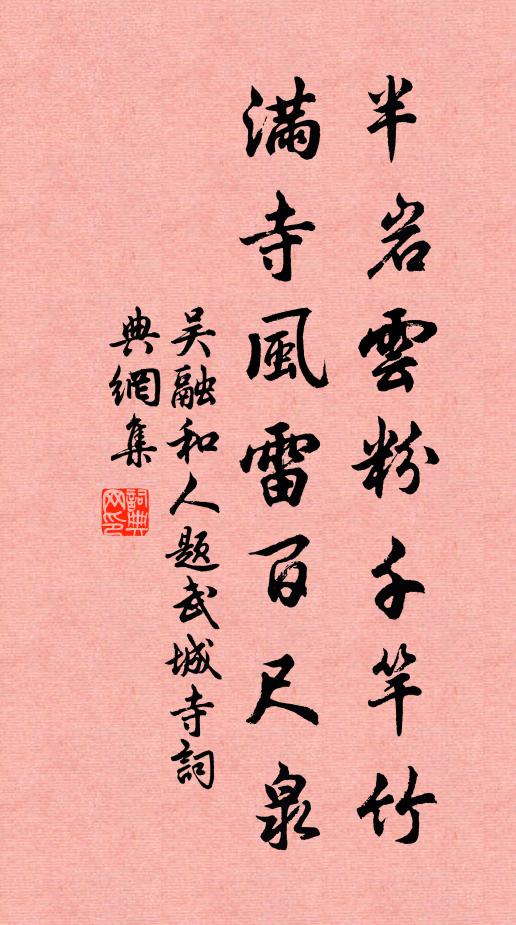 半岩雲粉千竿竹
滿寺風雷百尺泉
吴融和人题武城寺詞
典網集
詞典網印